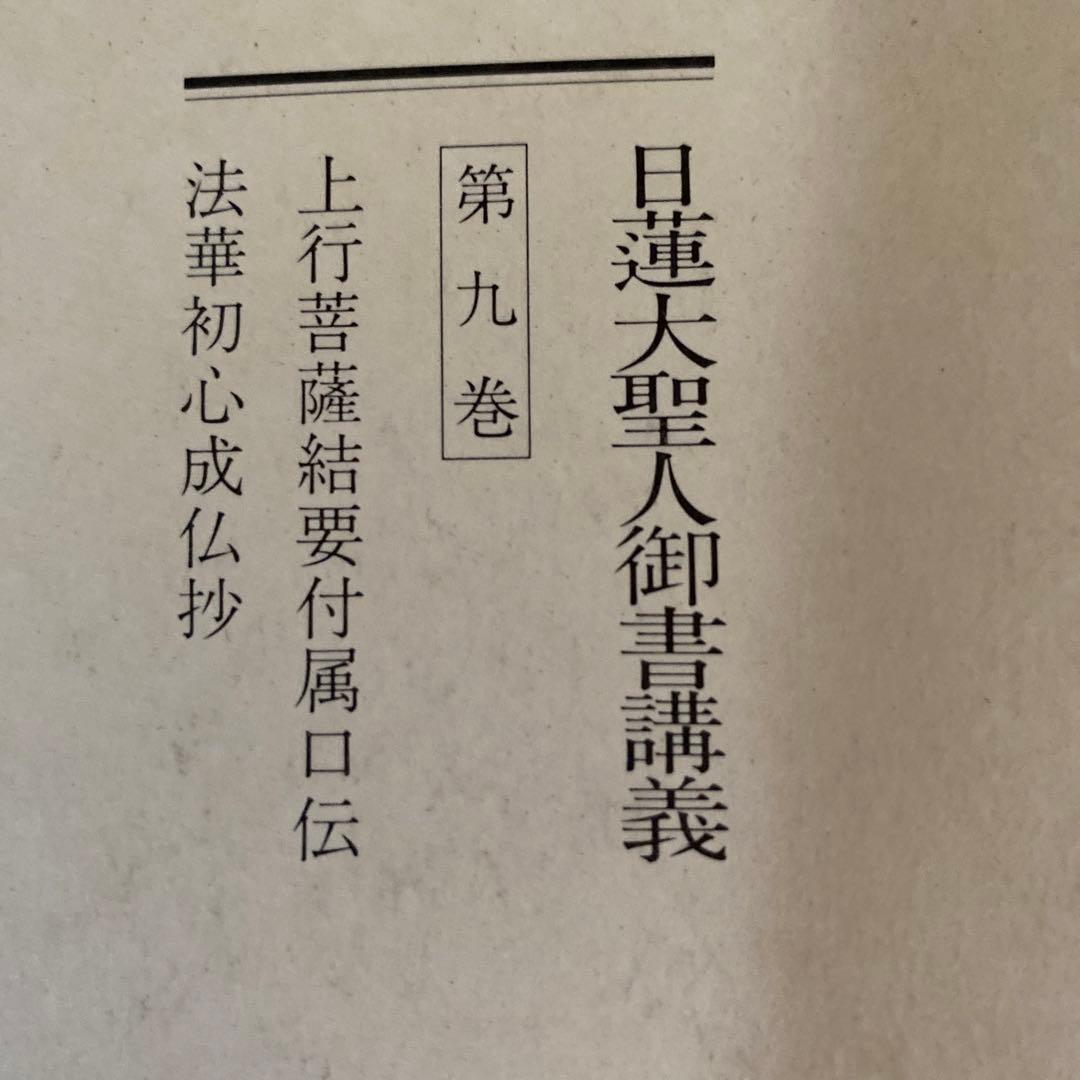 日蓮大聖人御書講義
第九巻
上行菩薩結要付属口伝
法華初心成仏抄